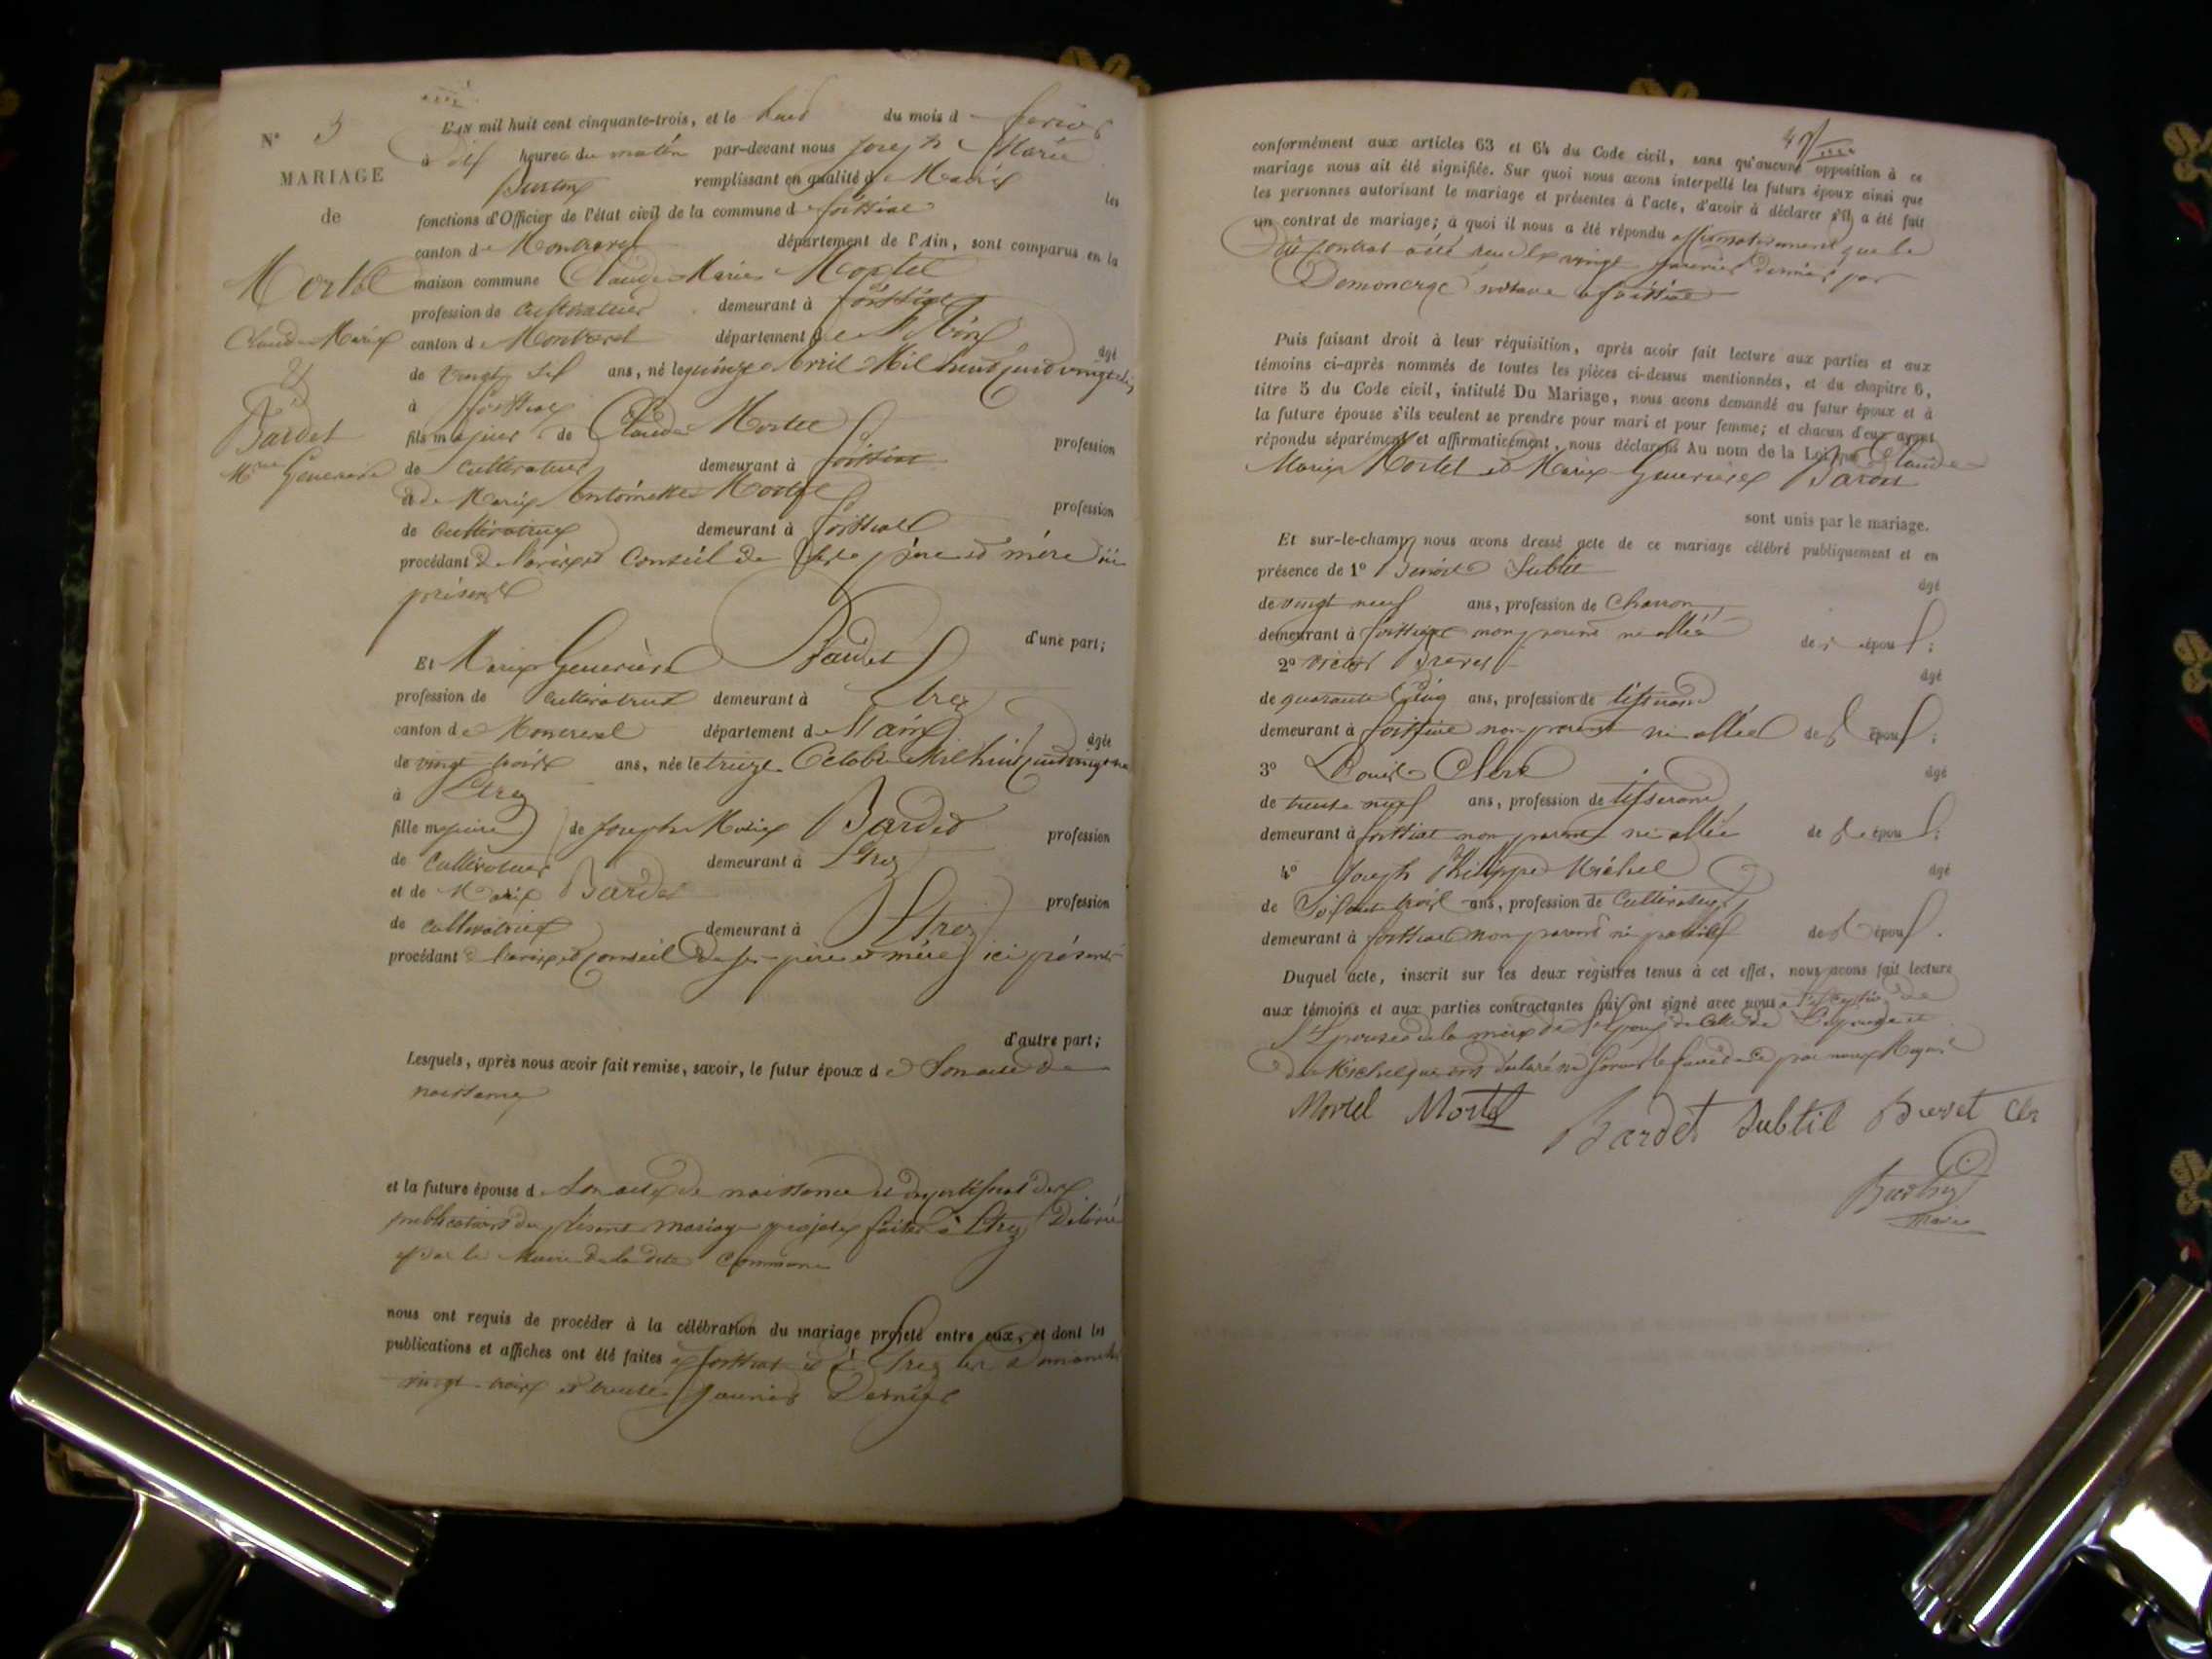 N° 3
MARIAGE
de
Mortel
Claude Marie
et
Bardet
Mie Geneviève
L'AN mil huit cent cinquante-trois, et le huit du mois d fevrier
à dix heures du matin par-devant nous Joseph Marie
remplissant en qualité de Maire les
fonctions d'Officier de l'état civil de la commune de foissiat
canton de Montrevel département de l'Ain, sont comparus en la
maison commune Claude Marie Mortel
profession de cultivateur demeurant à foissiat
canton de Montrevel département de l'Ain âgé
de vingt sept ans, né le quinze Avril Mil huit cent vingt
à foissiat
fils majeur de Claude Mortel profession
de cultivateur demeurant à foissiat
et de Marie Antoinette Mortel profession
de cultivatrice demeurant à foissiat
procédant de l'avis et Conseil de ses père et mère ici
présents
d'une part;
Et Marie Geneviève Bardet
profession de cultivatrice demeurant à Etrez
canton de Montrevel département de l'ain âgée
de vingt trois ans, née le treize Octobre Mil huit cent vingt
à Etrez
fille majeure de Joseph Marie Bardet profession
de cultivateur demeurant à Etrez
et de Marie Bardet profession
de cultivatrice demeurant à Etrez
procédant de l'avis et conseil de ses père et mère ici présents
d'autre part;
Lesquels, après nous avoir fait remise, savoir, le futur époux de Son acte de
naissance
et la future épouse de Son acte de naissance et du certificat des
publications du présent mariage projeté faites à Etrez délivré
par le Maire de la dite Commune
nous ont requis de procéder à la célébration du mariage projeté entre eux, et dont les
publications et affiches ont été faites à foissiat et à Etrez les dimanches
vingt trois et trente Janvier Dernier
conformément aux articles 63 et 64 du Code civil, sans qu'aucune opposition à ce
mariage nous ait été signifiée. Sur quoi nous avons interpellé les futurs époux ainsi que
les personnes autorisant le mariage et présentes à l'acte, d'avoir à déclarer s'il a été fait
un contrat de mariage; à quoi il nous a été répondu affirmativement que le
dit Contrat a été reçu le vingt janvier dernier par
notaire à foissiat
Puis faisant droit à leur réquisition, après avoir fait lecture aux parties et aux
témoins ci-après nommés de toutes les pièces ci-dessus mentionnées, et du chapitre 6,
titre 5 du Code civil, intitulé Du Mariage, nous avons demandé au futur époux et à
la future épouse s'ils veulent se prendre pour mari et pour femme; et chacun d'eux ayant
répondu séparément et affirmativement, nous déclarons Au nom de la Loi, que Claude
Marie Mortel et Marie Geneviève Bardet
sont unis par le mariage.
Et sur-le-champ nous avons dressé acte de ce mariage célébré publiquement et en
présence de 1° Benoit Subtil âgé
de vingt neuf ans, profession de Charron
demeurant à foissiat non parent ni allié de l'époux;
2° Victor Brevet âgé
de quarante cinq ans, profession de tisserand
demeurant à foissiat non parent ni allié de l'époux;
3° Louis Clerc âgé
de trente neuf ans, profession de tisserand
demeurant à foissiat non parent ni allié de l'époux;
4° Joseph Philippe Michel âgé
de Soixante trois ans, profession de Cultivateur
demeurant à foissiat non parent de l'époux.
Duquel acte, inscrit sur les deux régistres tenus à cet effet, nous avons fait lecture
aux témoins et aux parties contractantes qui ont signé avec nous à l'exception de
l'épouse de la mère de l'époux de celle de l'épouse et
de Michel qui ont déclaré ne savoir le faire de ce par nous Requis
Mortel Mortel Bardet Subtil Brevet Clr
Maire